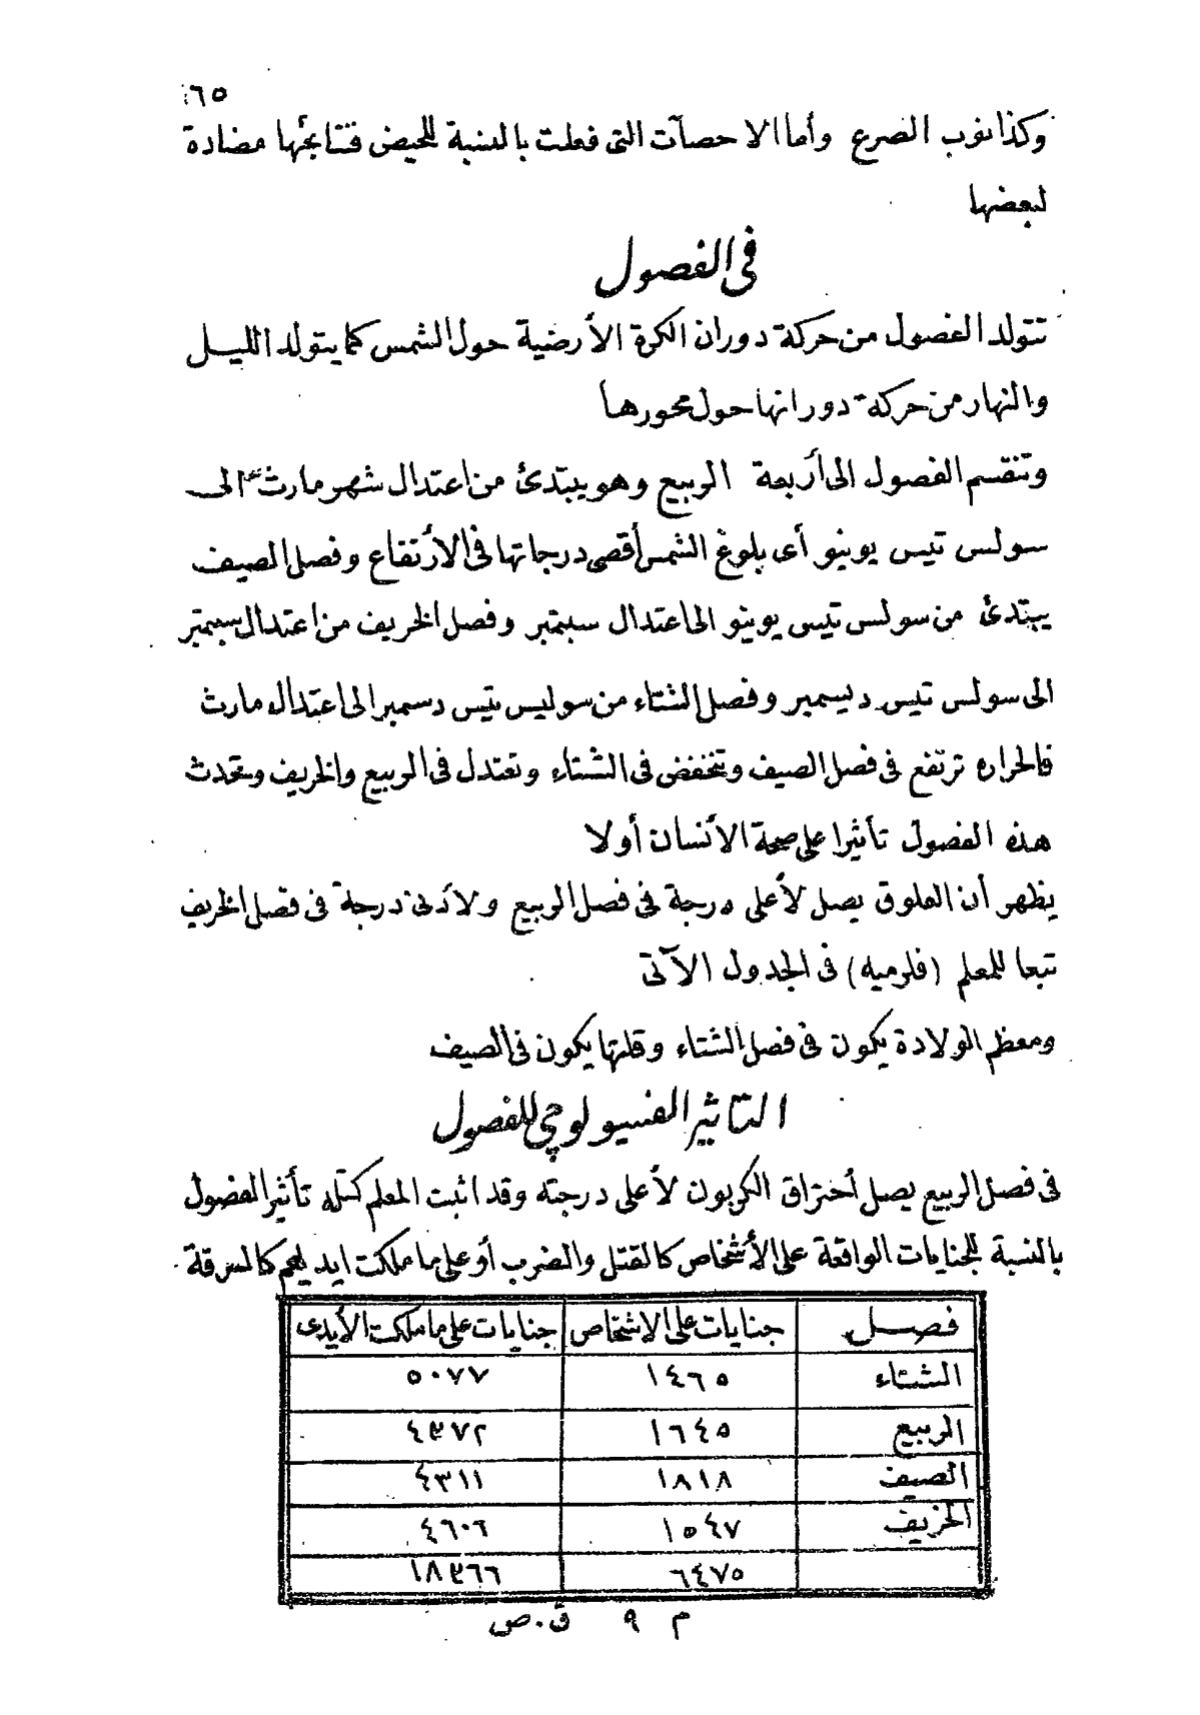 ٦٥
وكذا نوب الصرع وأما الاحصآت التى فعلت بالنسبة للحيض فنتائجها مضادة
لبعضها
فى الفصول
تتولد الفصول من حركة دوران الكرة الأرضية حول الشمس كما يتولد الليل
والنهار من حركة دورانها حول محورها
وتنقسم الفصول الى أربعة الربيع وهو يبتدئ من اعتدال شهر مارث الى
سولس تيس يوينو أى بلوغ الشمس أقصى درجاتها فى الأرتفاع وفصل الصيف
يبتدئ من سولس تيس يوينو الى اعتدال سبتمبر وفصل الخريف من اعتدال سبتمبر
الى سولس تيس ديسمبر وفصل الشتاء من سوليس تيس دسمبر الى اعتدال مارث
فالحراره ترتفع فى فصل الصيف وتنخفض فى الشتاء وتعتدل فى الربيع والخريف وتحدث
هذه الفصول تأثيرا على صحة الأنسان أولا
يظهر أن العلوق يصل لأعلى درجة فى فصل الربيع ولأدنى درجة فى فصل الخريف
تبعا للمعلم (فلرميه) فى الجدول الآتى
ومعظم الولادة يكون فى فصل الشتاء وقلتها يكون فى الصيف
التاثير الفسيولوچى للفصول
فى فصل الربيع يصل أحتراق الكربون لأعلى درجته وقد اثبت المعلم كتله تأثير الفصول
بالنسبة للجنايات الواقعة على الأشخاص كالقتل والضرب أو على ما ملكت ايديهم كالسرقة
فصل جنايات على الاشخاص جنايات على ما ملكت الأيدى
الشتاء ١٤٦٥ ٥٠٧٧
الربيع ١٦٤٥ ٤٣٧٢
الصيف ١٨١٨ ٤٣١١
الخريف ١٥٤٧ ٤٦٠٦
٦٤٧٥ ١٨٣٦٦
م ٩ ق. ص